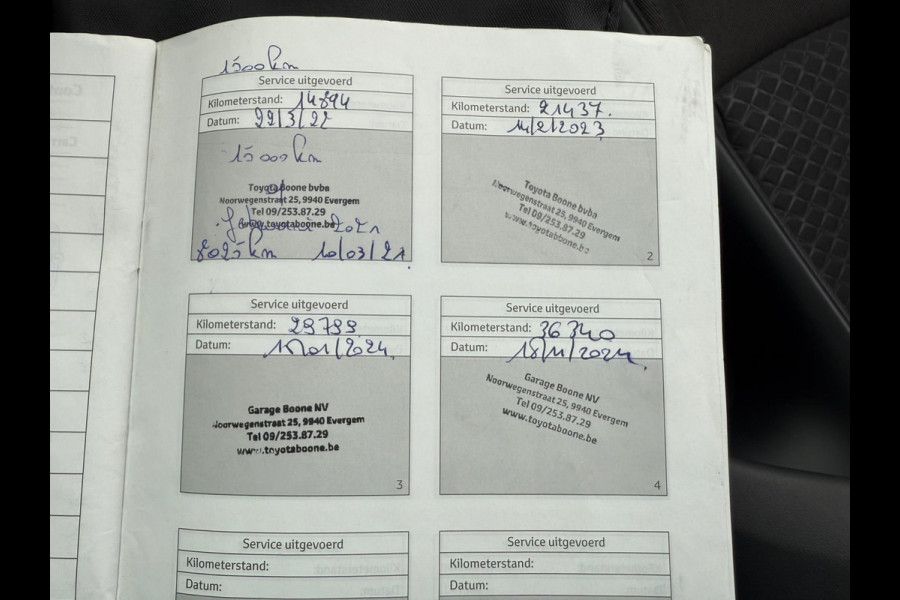 15000 km
Service uitgevoerd
Kilometerstand: 14894
Datum: 22/3/22
15 000 km
Toyota Boone bvba
Noorwegenstraat 25, 9940 Evergem
Tel 09/253.87.29
www.toyotaboone.be
2021
8025 km 10/03/21.
Service uitgevoerd
Kilometerstand: 21437.
Datum: 14/2/2023
Toyota Boone bvba
Noorwegenstraat 25, 9940 Evergem
Tel 09/253.87.29
www.toyotaboone.be
2
Service uitgevoerd
Kilometerstand: 29799
Datum: /01/2024.
Garage Boone NV
Noorwegenstraat 25, 9940 Evergem
Tel 09/253.87.29
www.toyotaboone.be
3
Service uitgevoerd
Kilometerstand: 36340
Datum: 18/11/2024.
Garage Boone NV
Noorwegenstraat 25, 9940 Evergem
Tel 09/253.87.29
www.toyotaboone.be
4
Service uitgevoerd
Kilometerstand:
Datum:
Service uitgevoerd
Kilometerstand:
Datum: